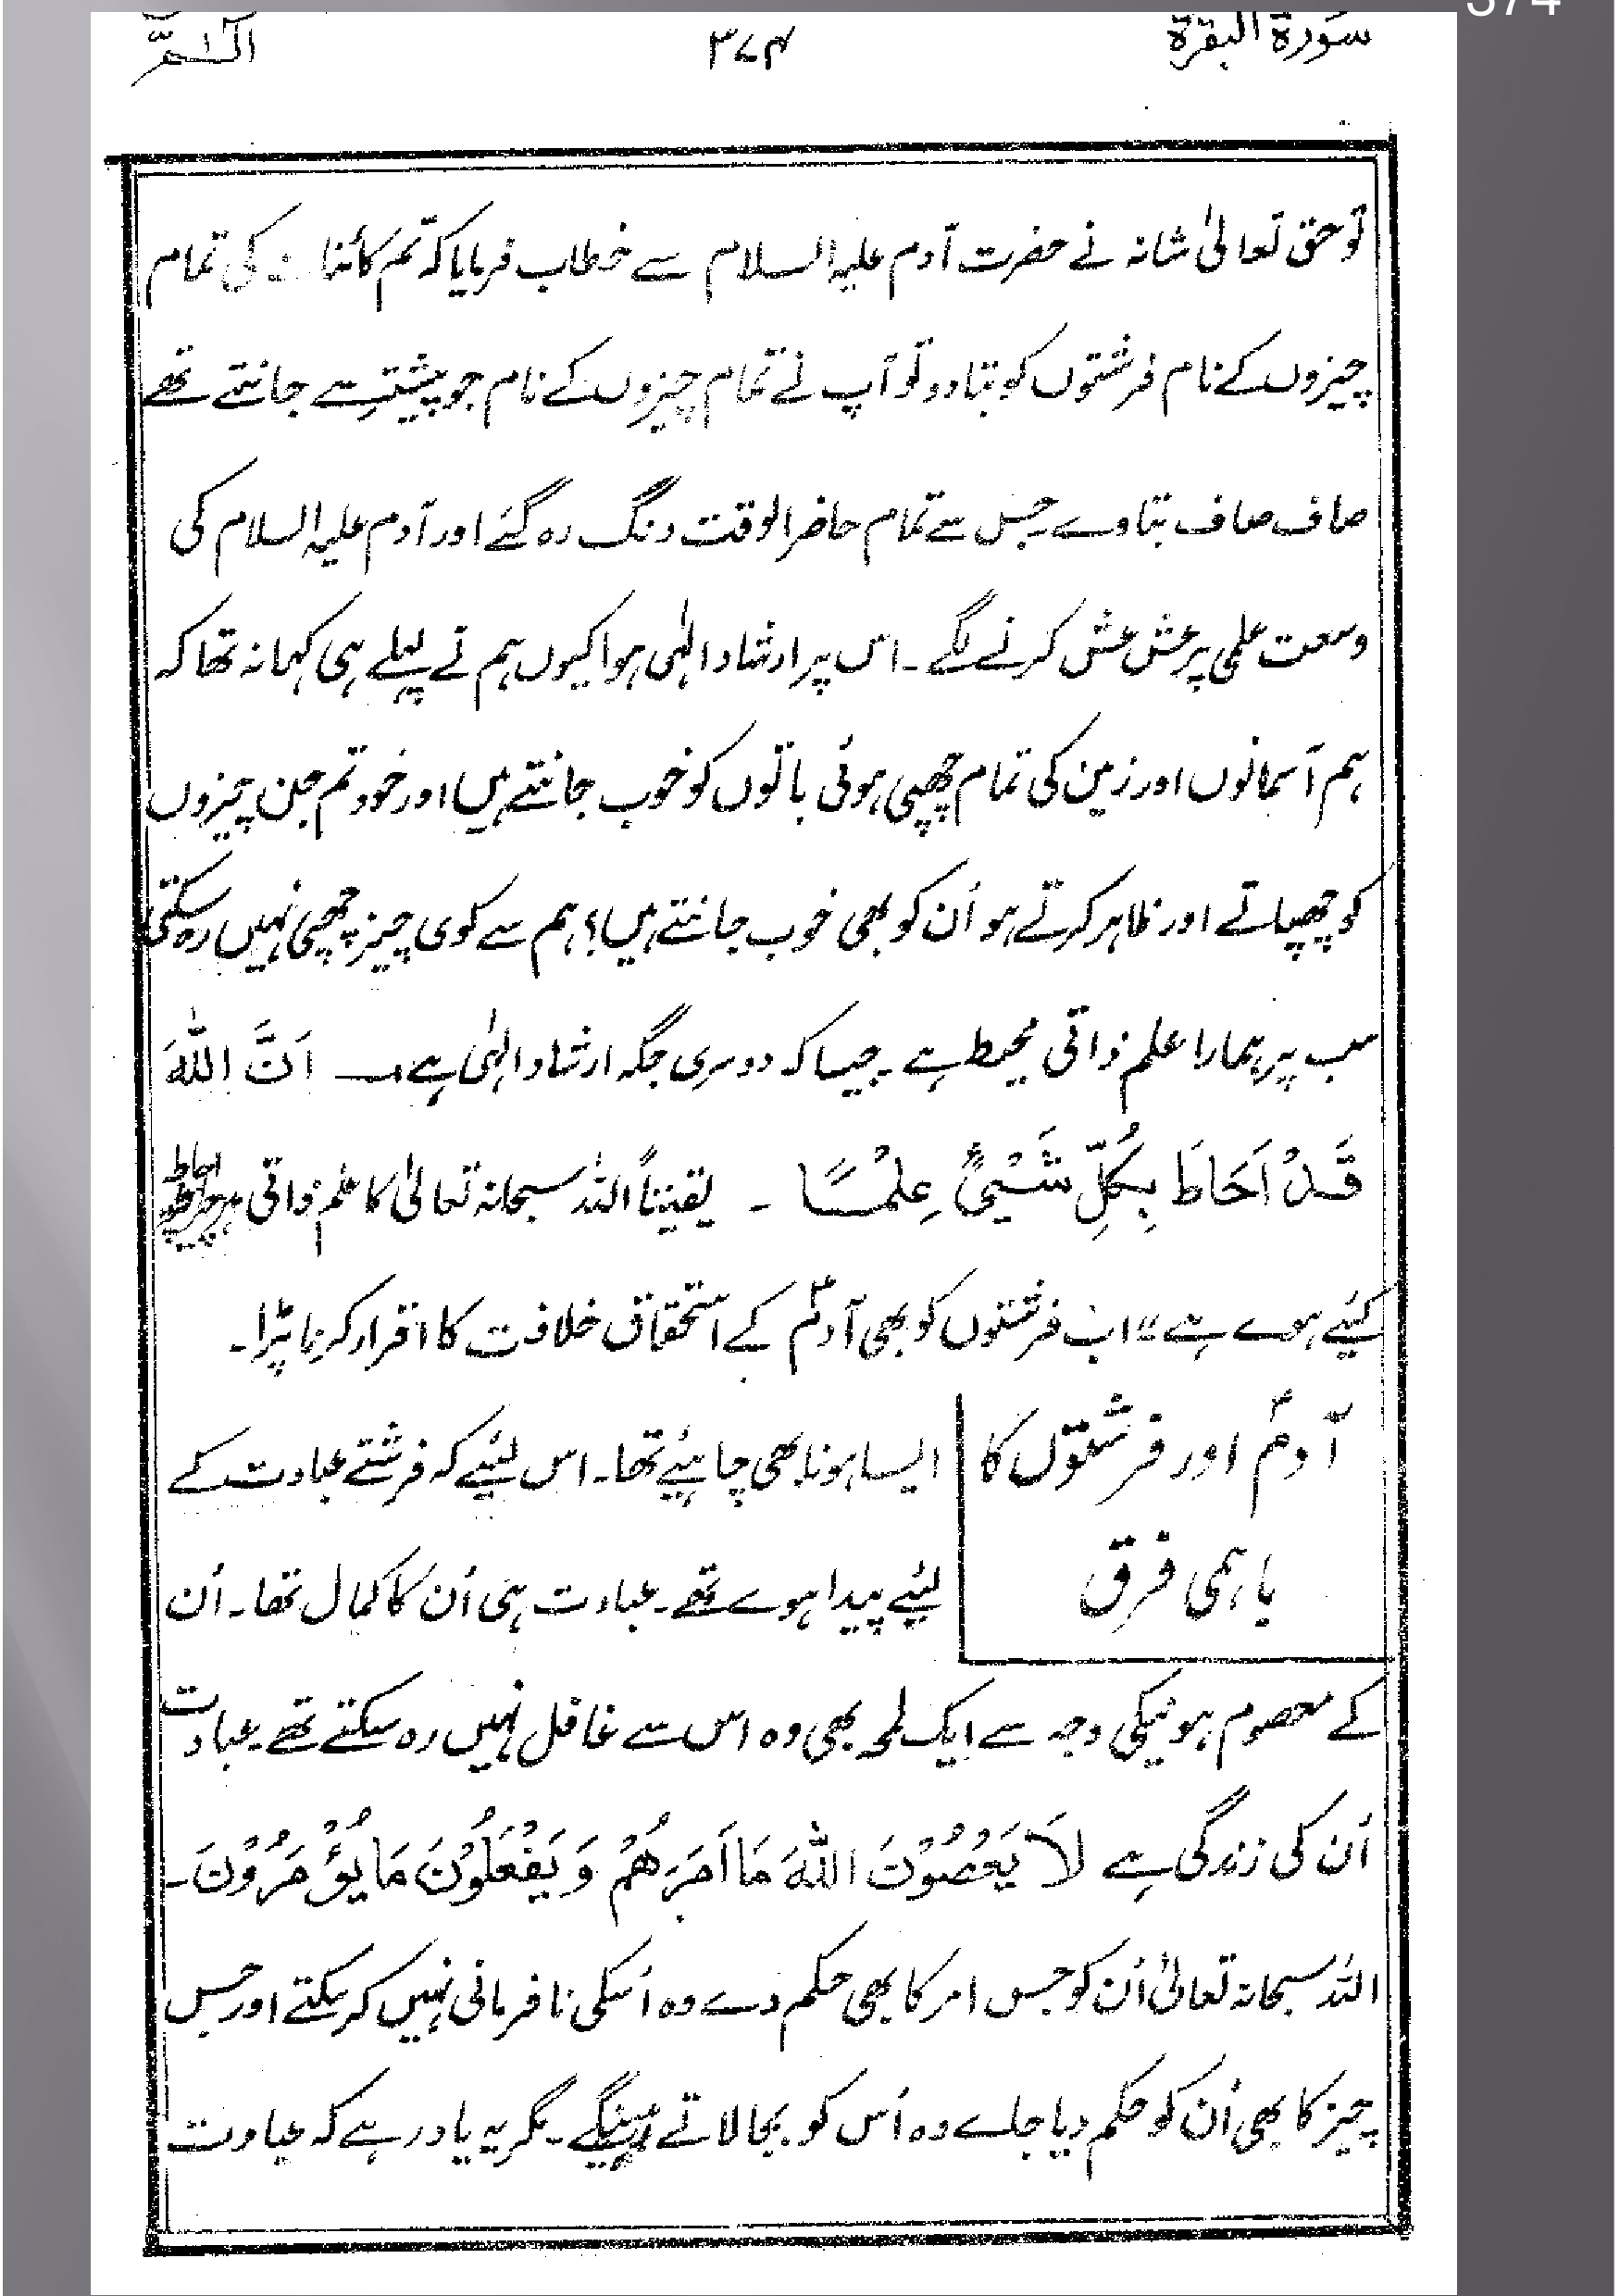 374
سورة البقرة
۳۷۴
الٓـمّٓ
تو حق تعالیٰ شانہ نے حضرت آدم علیہ السلام سے خطاب فرمایا کہ تم کائنات کی تمام
چیزوں کے نام فرشتوں کو بتا دو تو آپ نے تمام چیزوں کے نام جو پیشتر سے جانتے تھے
صاف صاف بتاوے جس سے تمام حاضر الوقت دنگ رہ گئے اور آدم علیہ السلام کی
وسعت علمی پر عش عش کرنے لگے۔ اس پر ارشاد الٰہی ہوا کیوں ہم نے پہلے ہی کہا نہ تھا کہ
ہم آسمانوں اور زمین کی تمام چھپی ہوئی باتوں کو خوب جانتے ہیں اور خود تم جن چیزوں
کو چھپاتے اور ظاہر کرتے ہو اُن کو بھی خوب جانتے ہیں؟ ہم سے کوی چیز چھپی نہیں رہ سکتی
سب پر ہمارا علم ذاتی محیط ہے۔ جیسا کہ دوسری جگہ ارشاد الٰہی ہے۔ اَنَّ اللّٰهَ
قَدْ اَحَاطَ بِكُلِّ شَيْئٍ عِلْمًا ۔ یقیناً اللہ سبحانہ تعالیٰ کا علم ذاتی ہر چیز پر احاطہ
کیئے ہوے ہے" اب فرشتوں کو بھی آدمؑ کے استحقاق خلافت کا اقرار کرنا پڑا۔
آدمؑ اور فرشتوں کا
باہمی فرق
ایسا ہونا بھی چاہیئے تھا۔ اس لیئے کہ فرشتے عبادت کے
لیئے پیدا ہوے تھے۔ عبادت ہی اُن کا کمال تھا۔ اُن
کے معصوم ہونیکی وجہ سے ایک لمحہ بھی وہ اس سے غافل نہیں رہ سکتے تھے۔ عبادت
اُن کی زندگی ہے لَا يَعْصُوْنَ اللّٰهَ مَا اَمَرَهُمْ وَ يَفْعَلُوْنَ مَا يُؤْمَرُوْنَ۔
اللہ سبحانہ تعالیٰ اُن کو جس امر کا بھی حکم دے وہ اُسکی نافرمانی نہیں کر سکتے اور جس
چیز کا بھی اُن کو حکم دیا جاے وہ اُس کو بجا لاتے رہینگے۔ مگر یہ یاد رہے کہ عبادت